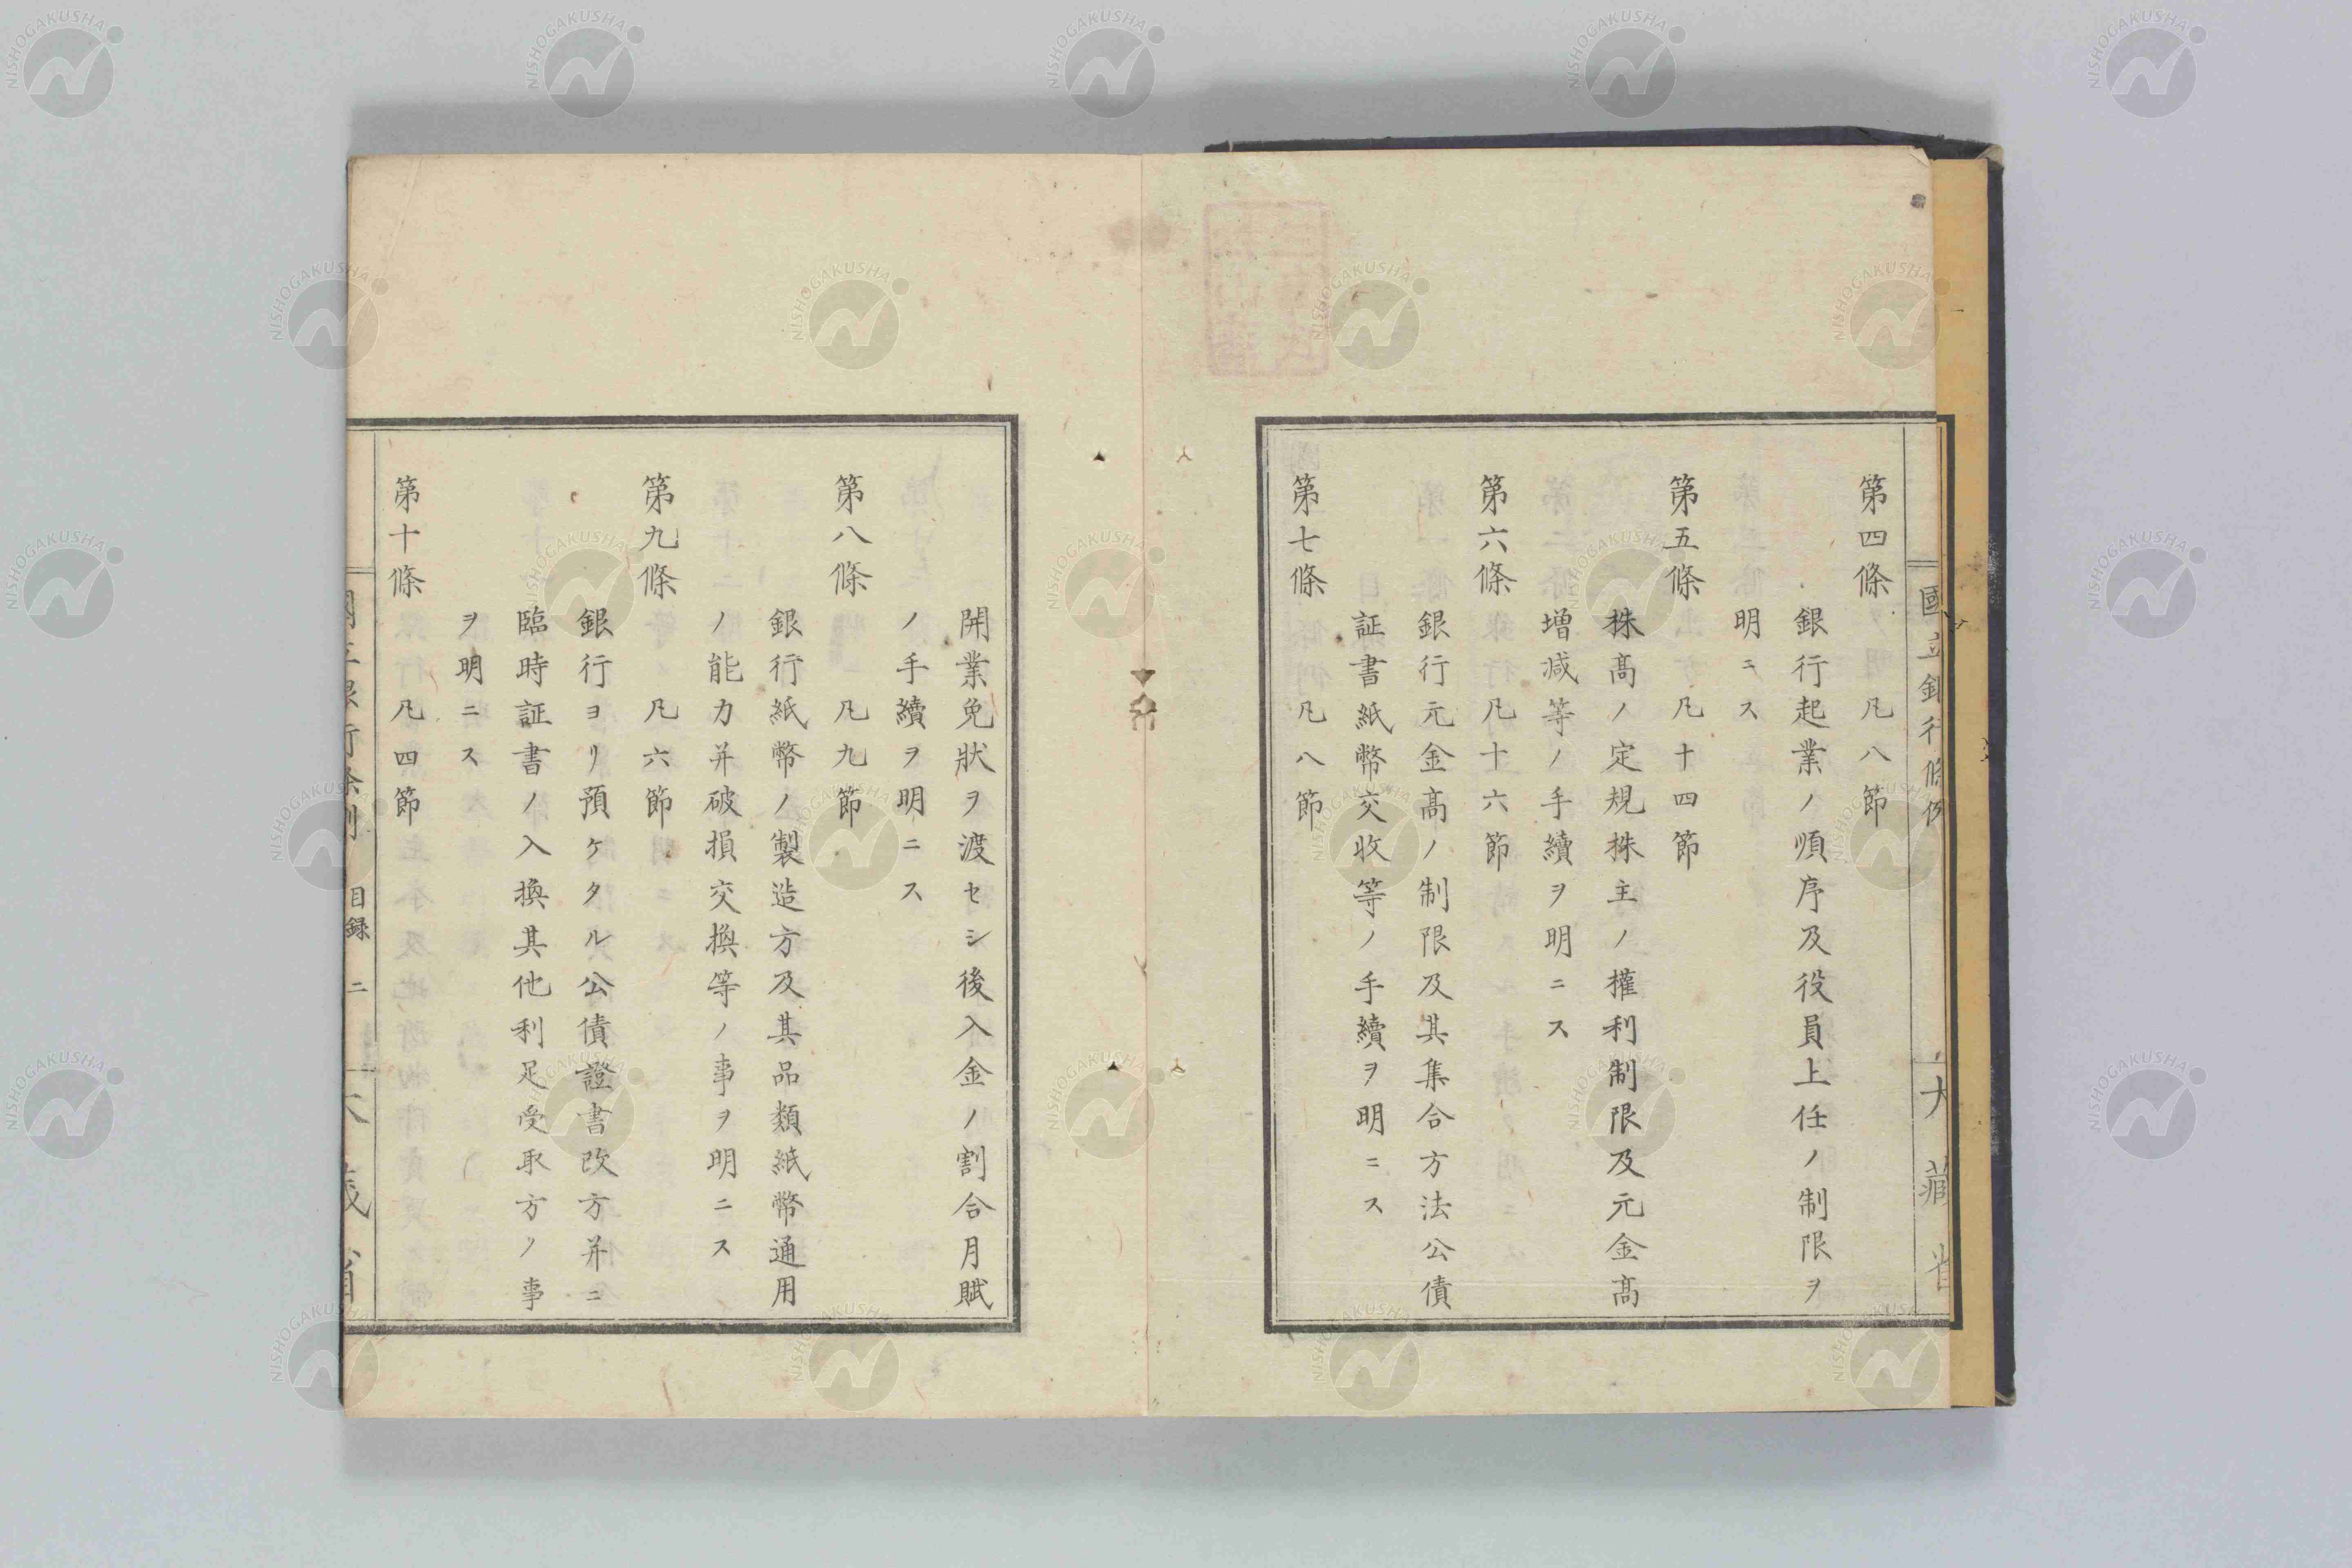 國立銀行條例
大藏省
第四條 凡八節
銀行起業ノ順序及役員上任ノ制限ヲ
明ニス
第五條 凡十四節
株高ノ定規株主ノ權利制限及元金高
増减等ノ手續ヲ明ニス
第六條 凡十六節
銀行元金高ノ制限及其集合方法公債
証書紙幣交收等ノ手續ヲ明ニス
第七條 凡八節
開業免狀ヲ渡セシ後入金ノ割合月賦
ノ手續ヲ明ニス
第八條 凡九節
銀行紙幣ノ製造方及其品類紙幣通用
ノ能力并破損交換等ノ事ヲ明ニス
第九條 凡六節
銀行ヨリ預ケタル公債證書改方并ニ
臨時証書ノ入換其他利足受取方ノ事
ヲ明ニス
第十條 凡四節
國立銀行條例 目録 二
大藏省
NISHOGAKUSHA